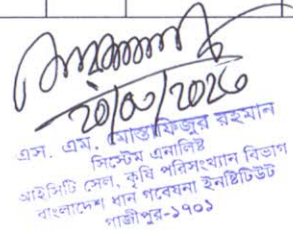 ২০/০৩/২০২৩
এস. এম. মোস্তাফিজুর রহমান
সিস্টেম এনালিষ্ট
আইসিটি সেল, কৃষি পরিসংখ্যান বিভাগ
বাংলাদেশ ধান গবেষনা ইনষ্টিটিউট
গাজীপুর-১৭০১